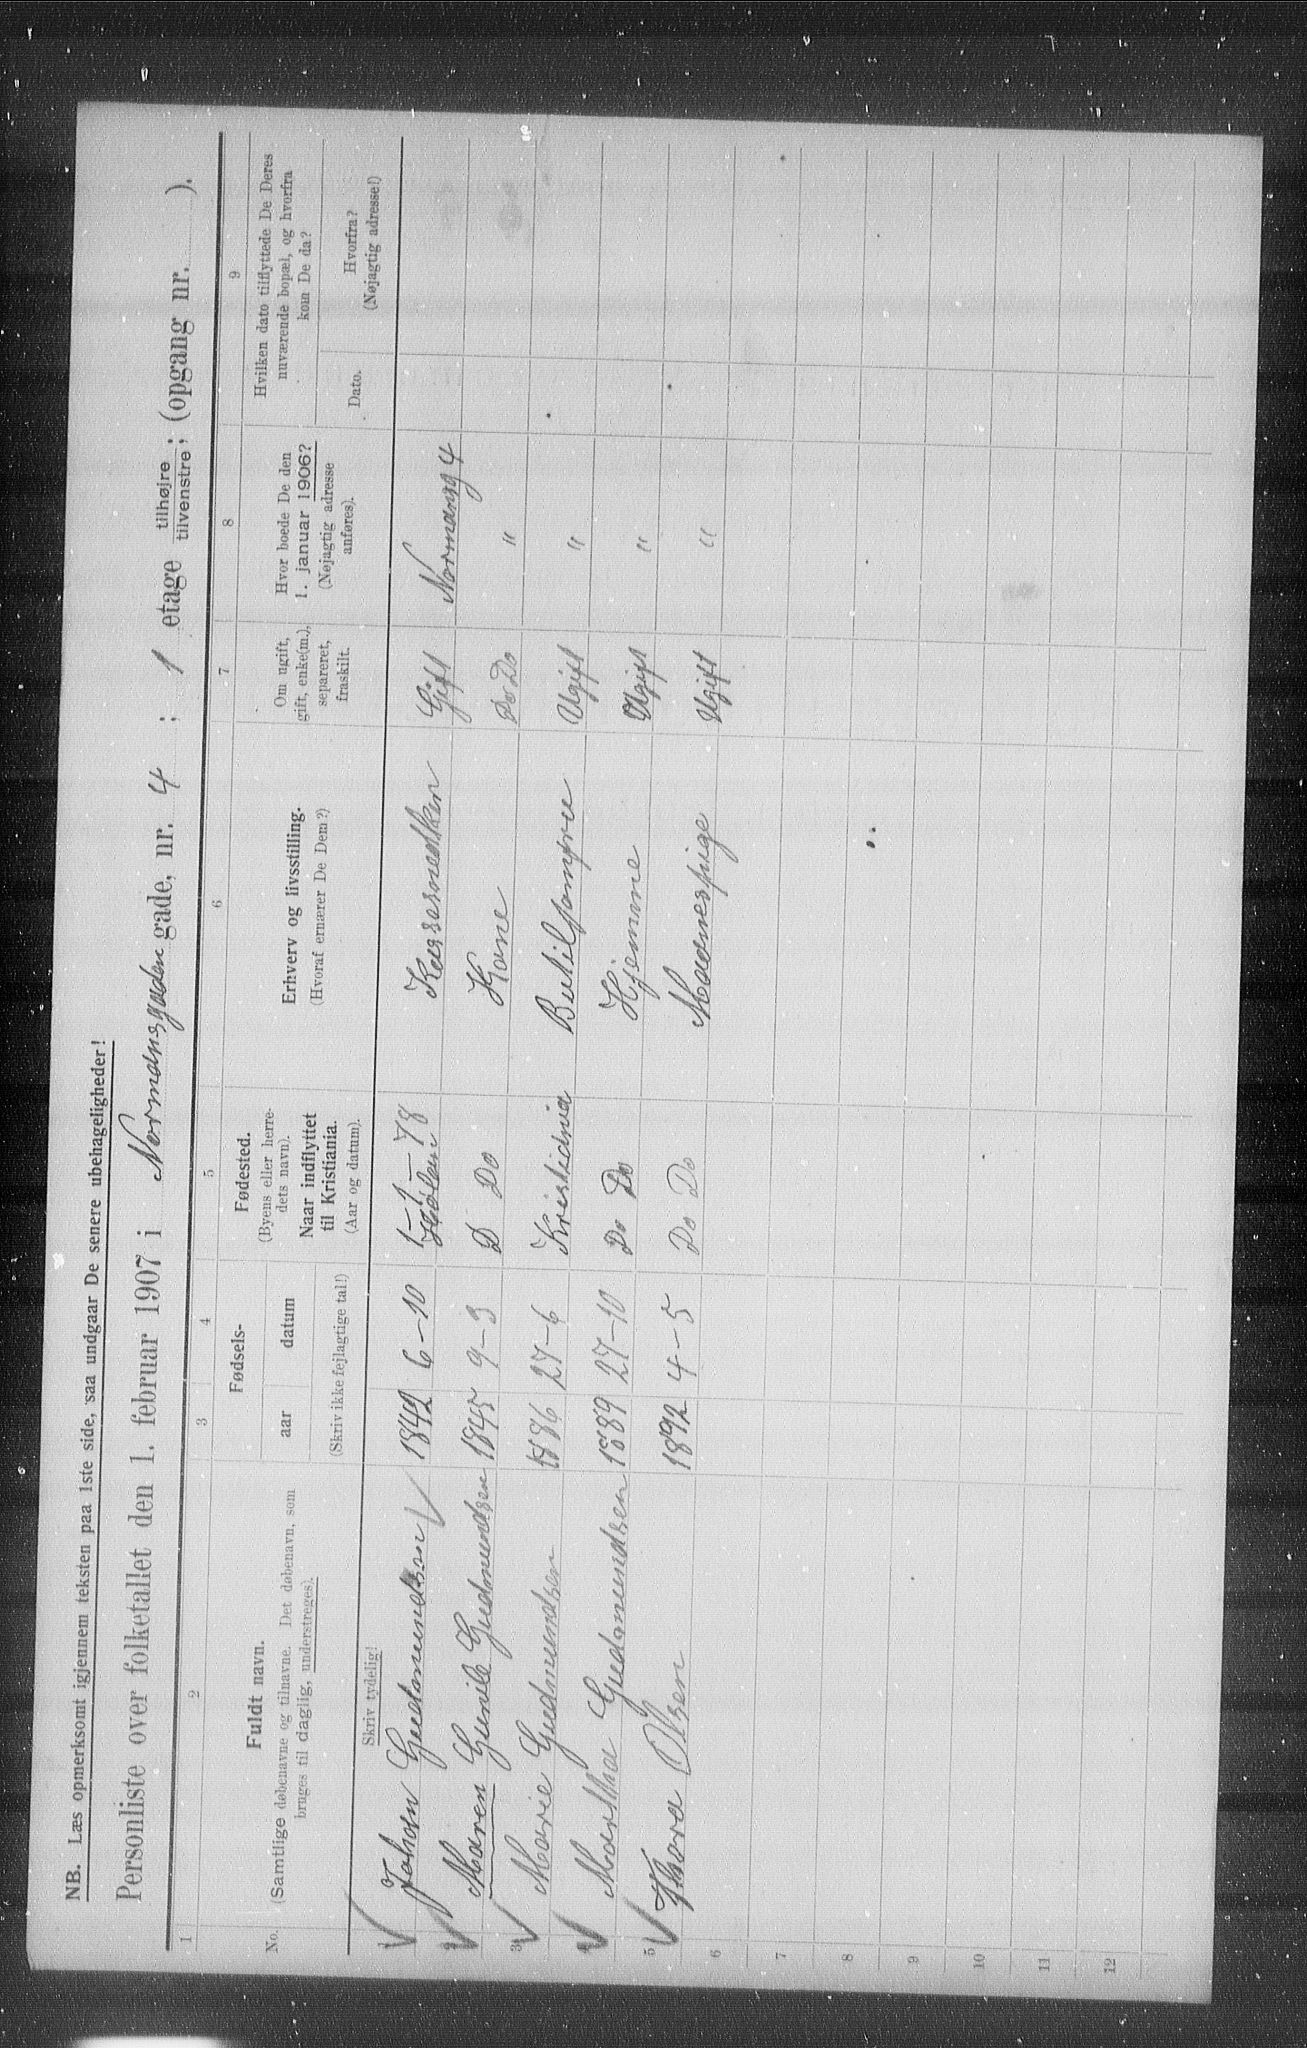 NB. Læs opmerksomt igjennem teksten paa 1ste side, saa undgaar De senere ubehageligheder!
Personliste over folketallet den 1. februar 1907 i Normansgaden gade, nr. 4 ; 1 etage tilhøjre / tilvenstre; (opgang nr. ).
1 2 3 4 5 6 7 8 9
No.
Fuldt navn.
(Samtlige døbenavne og tilnavne. Det døbenavn, som
bruges til daglig, understreges).
Skriv tydelig!
Fødsels-
aar datum
(Skriv ikke fejlagtige tal!)
Fødested.
(Byens eller herre-
dets navn).
Naar indflyttet
til Kristiania.
(Aar og datum).
Erhverv og livsstilling.
(Hvoraf ernærer De Dem?)
Om ugift,
gift, enke(m.),
separeret,
fraskilt.
Hvor boede De den
1. januar 1906?
(Nøjagtig adresse
anføres).
Hvilken dato tilflyttede De Deres
nuværende bopæl, og hvorfra
kom De da?
Dato.
Hvorfra?
(Nøjagtig adresse!)
1-1-78
1 Johan Gudmundsen 1842 6-10 Gift Normansg 4
2 Maren Gunild Gudmundsen 1845 9-3 D Do Kone Do Do "
3 Marie Gudmundsen 1886 27-6 Kristiania Butikjomfru Ugift "
4 Martha Gudmundsen 1889 27-10 Do Do Hjemme Ugift "
5 Thora Olsen 1892 4-5 Do Do Ugift "
6
7
8
9
10
11
12